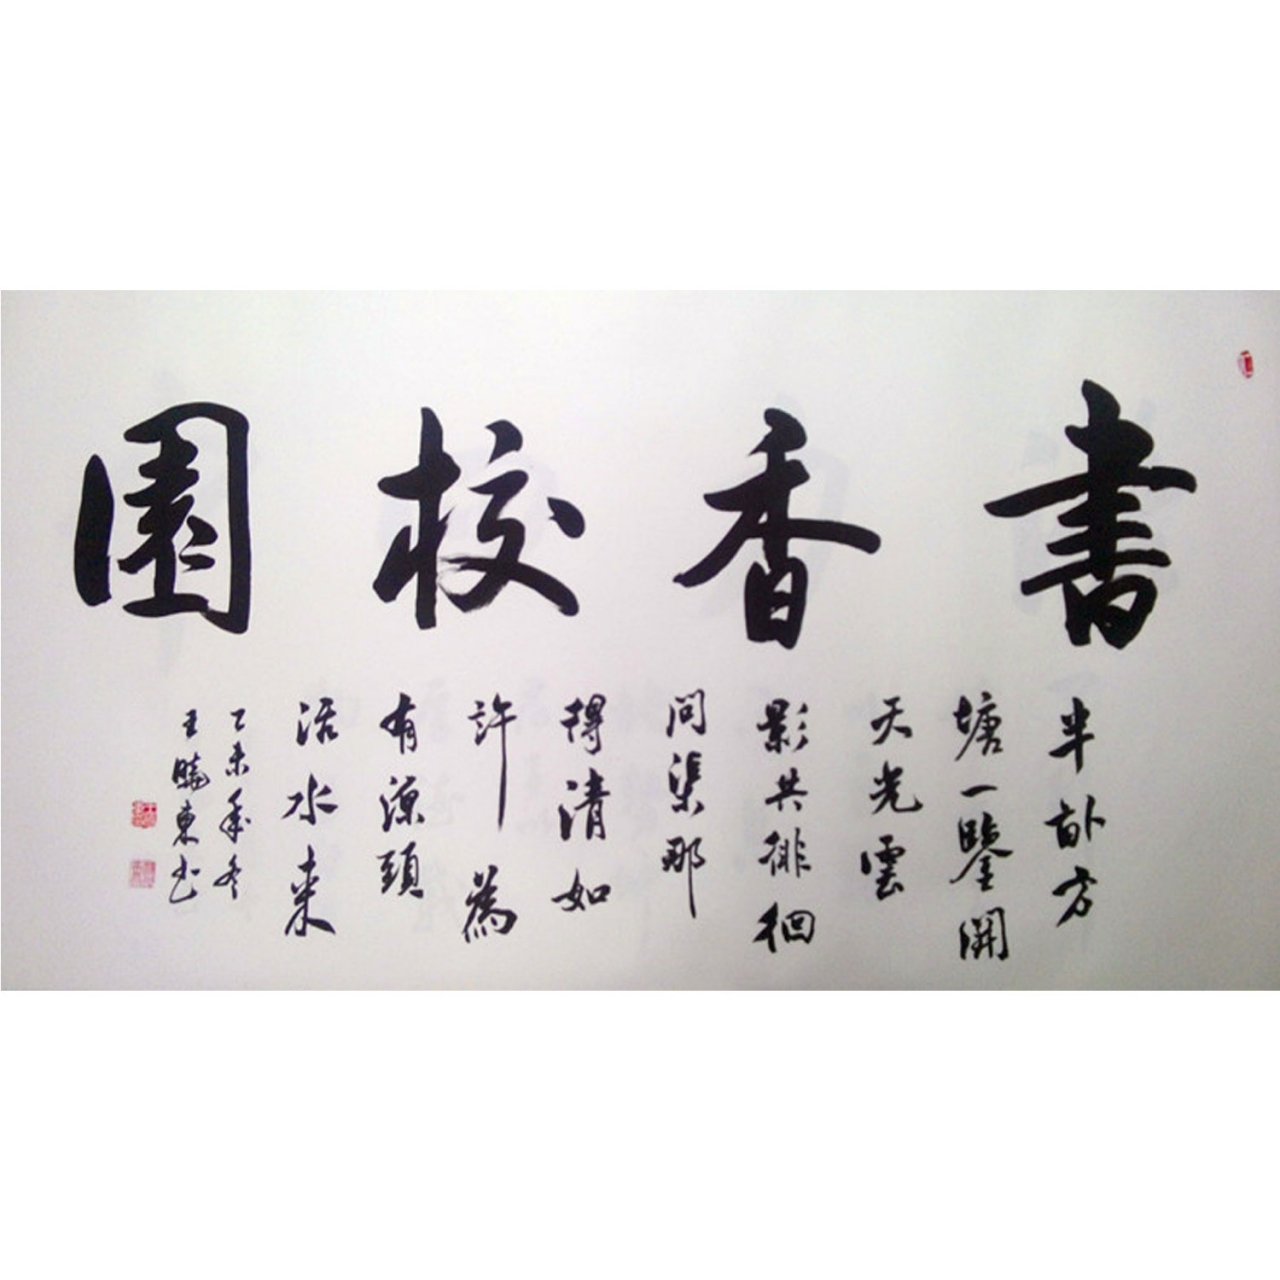 書香校園
半畝方
塘一鑒開
天光雲
影共徘徊
問渠那
得清如
許為
有源頭
活水來
乙未年冬
王曉東書